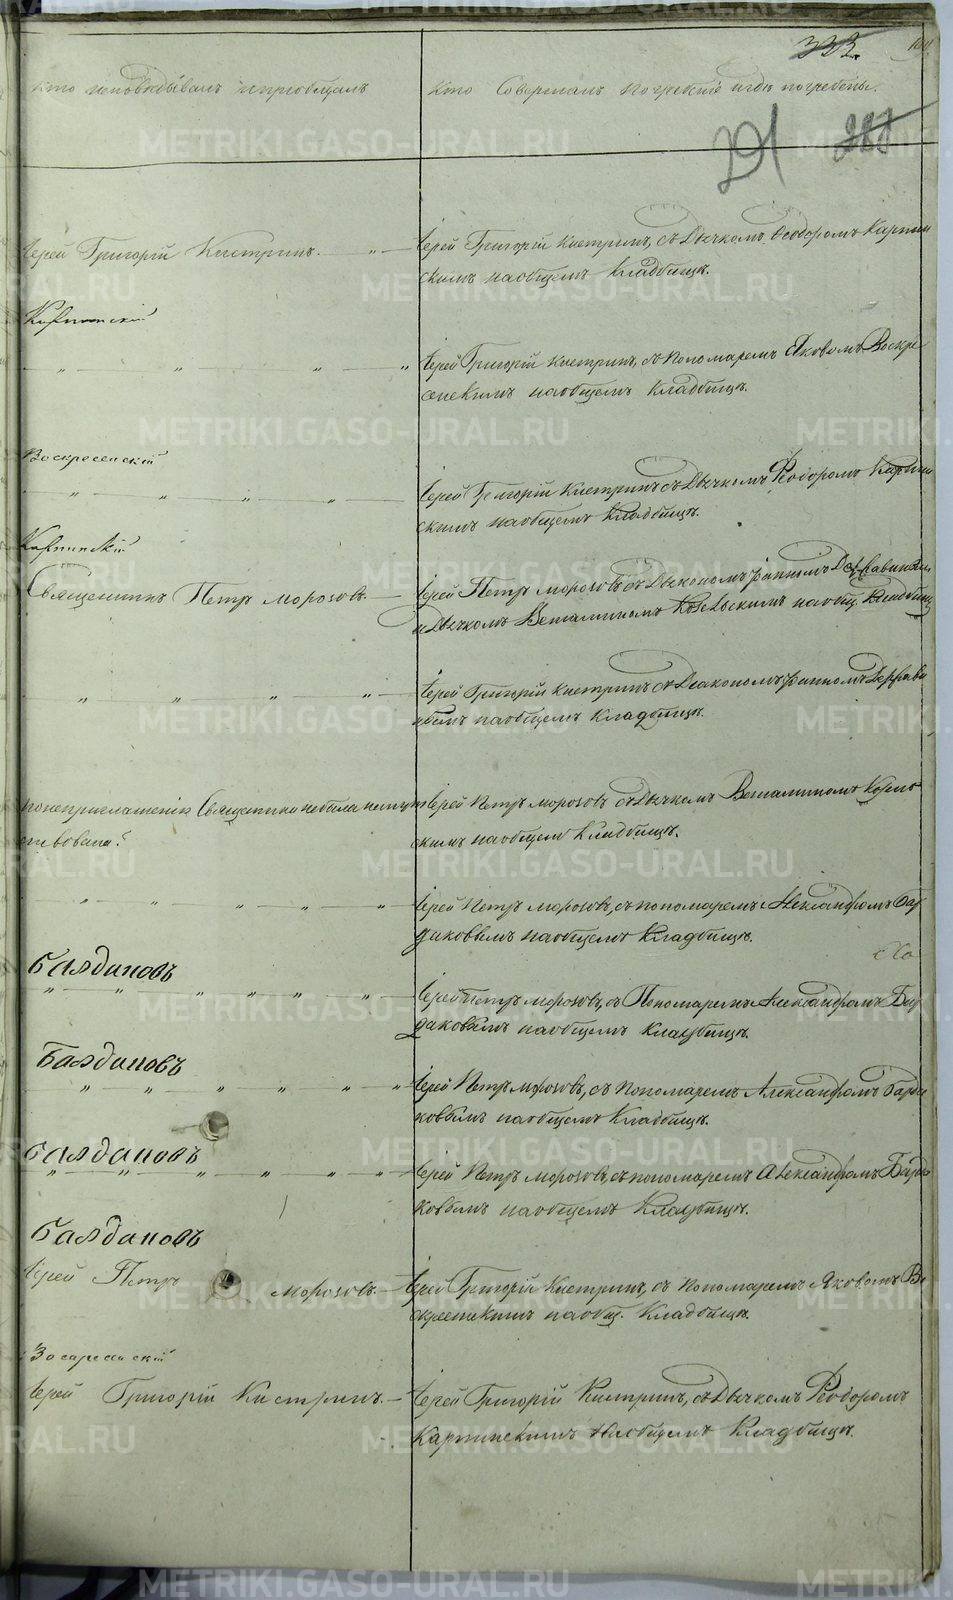 332.
Кто исповѣдывалъ и пріобщалъ
Кто Совершалъ погребеніе и гдѣ погребены.
291
Іерей Григорій Кистринъ. — " —
Іерей Григорій Кистринъ, съ Дьячкомъ Ѳеодоромъ Карпин
скимъ на общемъ Кладбищѣ.
Карпинскій
" " " "
Іерей Григорій Кистринъ, съ Пономаремъ Яковомъ Воскре
сенскимъ на общемъ Кладбищѣ.
Воскресенскій
" " " "
Іерей Григорій Кистринъ съ Дьячкомъ Ѳеодоромъ Карпин
скимъ на общемъ Кладбищѣ.
Карпинскій
Священникъ Петръ Морозовъ. —
Іерей Петръ Морозовъ съ Дьякономъ
и Дьячкомъ Веніаминомъ на общ. Кладбищѣ
" " " "
Іерей Григорій Кистринъ съ Діакономъ Держави
нымъ на общемъ Кладбищѣ.
по неприглашенію Священника небыла испо
Іерей Петръ Морозовъ съ Дьячкомъ Веніаминомъ
скимъ на общемъ Кладбищѣ.
" " " " "
Іерей Петръ Морозовъ, съ пономаремъ Александромъ Бар
даковымъ на общемъ Кладбищѣ.
Балдиновъ
" " " " " "
Іерей Петръ Морозовъ, съ Пономаремъ Александромъ Бар
даковымъ на общемъ Кладбищѣ.
Балдиновъ
" " " " " "
Іерей Петръ Морозовъ, съ Пономаремъ Александромъ Барда
ковымъ на общемъ Кладбищѣ.
Балдиновъ
" " " " " "
Іерей Петръ Морозовъ, съ пономаремъ Александромъ Барда
ковымъ на общемъ Кладбищѣ.
Балдиновъ
Іерей Петръ Морозовъ. —
Іерей Григорій Кистринъ, съ Пономаремъ Яковомъ Во
скресенскимъ на общ. Кладбищѣ.
Воскресенскій
Іерей Григорій Кистринъ. —
Іерей Григорій Кистринъ, съ Дьячкомъ Ѳеодоромъ
Карпинскимъ на общемъ Кладбищѣ.
METRIKI.GASO-URAL.RU